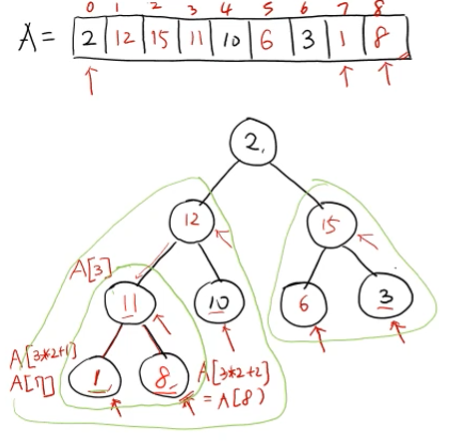 0 1 2 3 4 5 6 7 8
A = 2 12 15 11 10 6 3 1 8
2
12 15
A[3]
11 10 6 3
A[3*2+1]
A[7]
1 8
A[3*2+2]
= A[8)